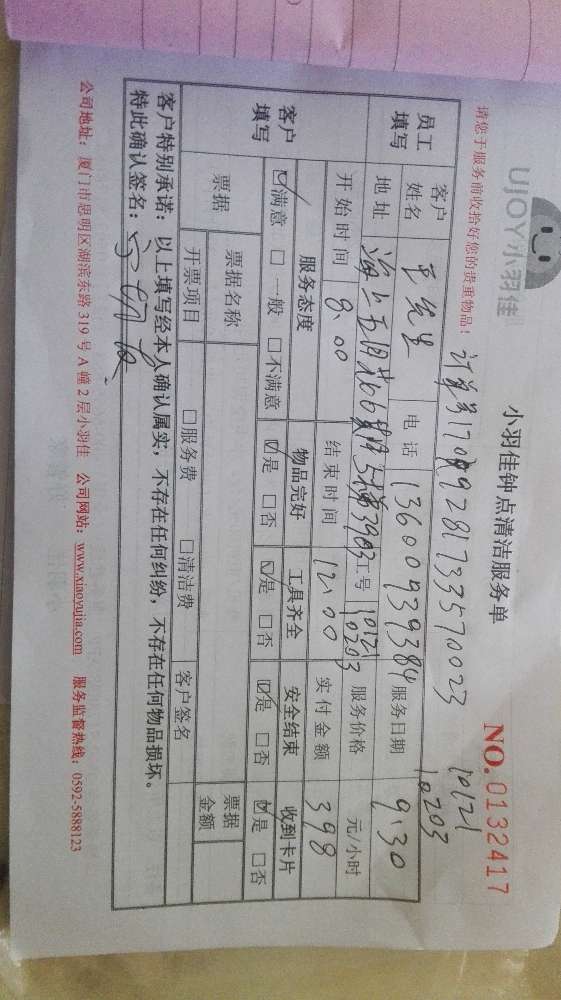 UJOY小羽佳
小羽佳钟点清洁服务单
NO. 0132417
10121
10203
请您于服务前收拾好您的贵重物品!
订单号
员工填写
客户姓名
电话 13600939384
服务日期 9.30
地址 海上五月花
3903
工号 10121 10203
服务价格 元/小时
开始时间 8:00
结束时间 12:00
实付金额 398
客户填写
服务态度 物品完好 工具齐全 安全结束 收到卡片
☑满意 □一般 □不满意 ☑是 □否 ☑是 □否 ☑是 □否 ☑是 □否
票据
票据名称
票据金额
开票项目 □服务费 □清洁费 客户签名
客户特别承诺:以上填写经本人确认属实,不存在任何纠纷,不存在任何物品损坏。
特此确认签名:
公司地址:厦门市思明区湖滨东路 319 号 A 幢 2 层小羽佳 公司网站:www.xiaoyujia.com 服务监督热线:0592-5888123